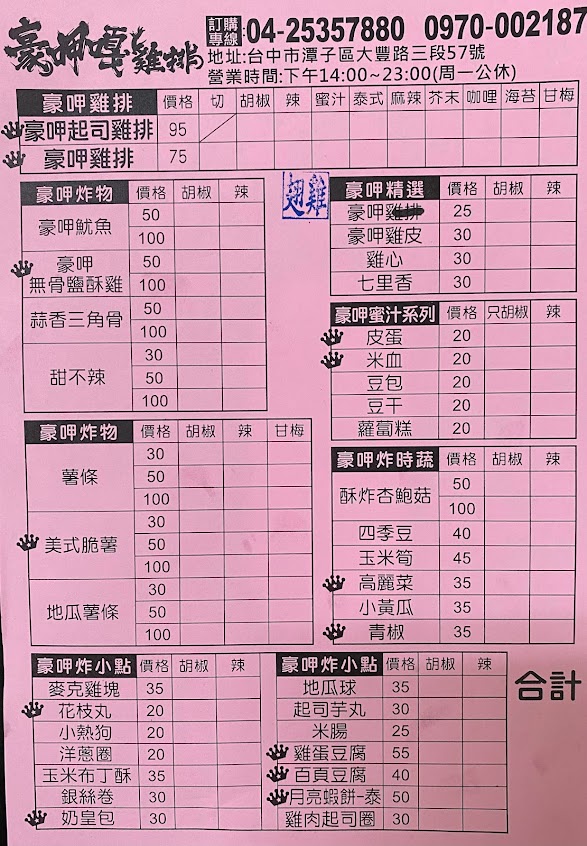 豪呷嘎雞排
訂購專線 04-25357880 0970-002187
地址:台中市潭子區大豐路三段57號
營業時間:下午14:00~23:00(周一公休)
豪呷雞排 價格 切 胡椒 辣 蜜汁 泰式 麻辣 芥末 咖哩 海苔 甘梅
豪呷起司雞排 95
豪呷雞排 75
豪呷炸物 價格 胡椒 辣
豪呷魷魚 50
100
豪呷無骨鹽酥雞 50
100
蒜香三角骨 50
100
甜不辣 30
50
100
翅雞
豪呷精選 價格 胡椒 辣
豪呷雞排 25
豪呷雞皮 30
雞心 30
七里香 30
豪呷蜜汁系列 價格 只胡椒 辣
皮蛋 20
米血 20
豆包 20
豆干 20
蘿蔔糕 20
豪呷炸物 價格 胡椒 辣 甘梅
薯條 30
50
100
美式脆薯 30
50
100
地瓜薯條 30
50
100
豪呷炸時蔬 價格 胡椒 辣
酥炸杏鮑菇 50
100
四季豆 40
玉米筍 45
高麗菜 35
小黃瓜 35
青椒 35
豪呷炸小點 價格 胡椒 辣
麥克雞塊 35
花枝丸 20
小熱狗 20
洋蔥圈 20
玉米布丁酥 35
銀絲卷 30
奶皇包 30
豪呷炸小點 價格 胡椒 辣
地瓜球 35
起司芋丸 30
米腸 25
雞蛋豆腐 55
百頁豆腐 40
月亮蝦餅-泰 50
雞肉起司圈 30
合計